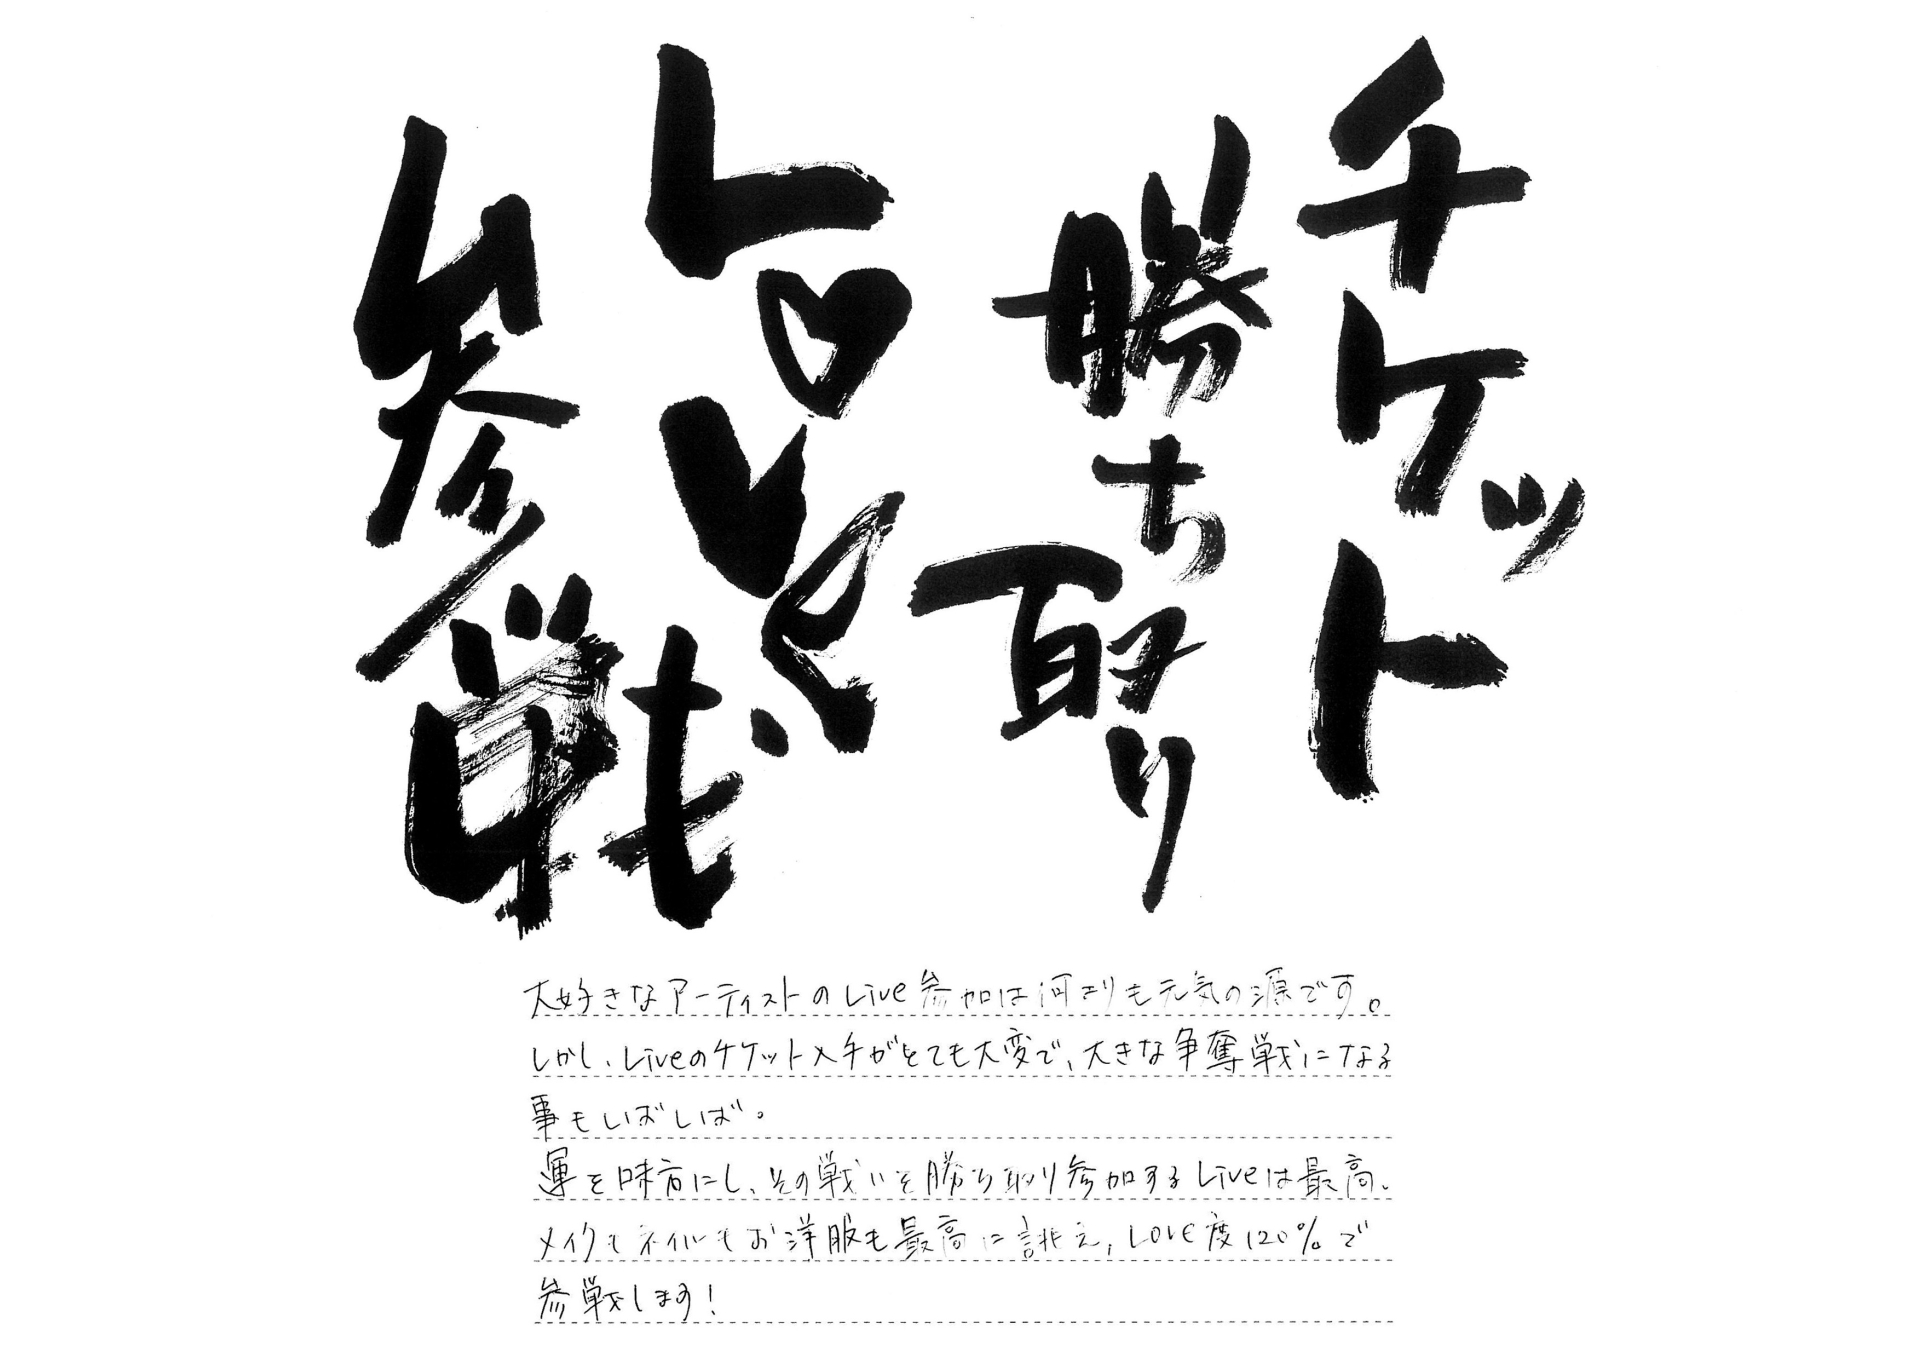 チケット
勝ち取り
LOVEも
参戦
大好きなアーティストのLive参加は何よりも元気の源です。
しかし、Liveのチケット入手がとても大変で、大きな争奪戦になる
事もしばしば。
運を味方にし、その戦いを勝ち取り参加するLiveは最高。
メイクもネイルもお洋服も最高に誂え、LOVE度120%で
参戦します!